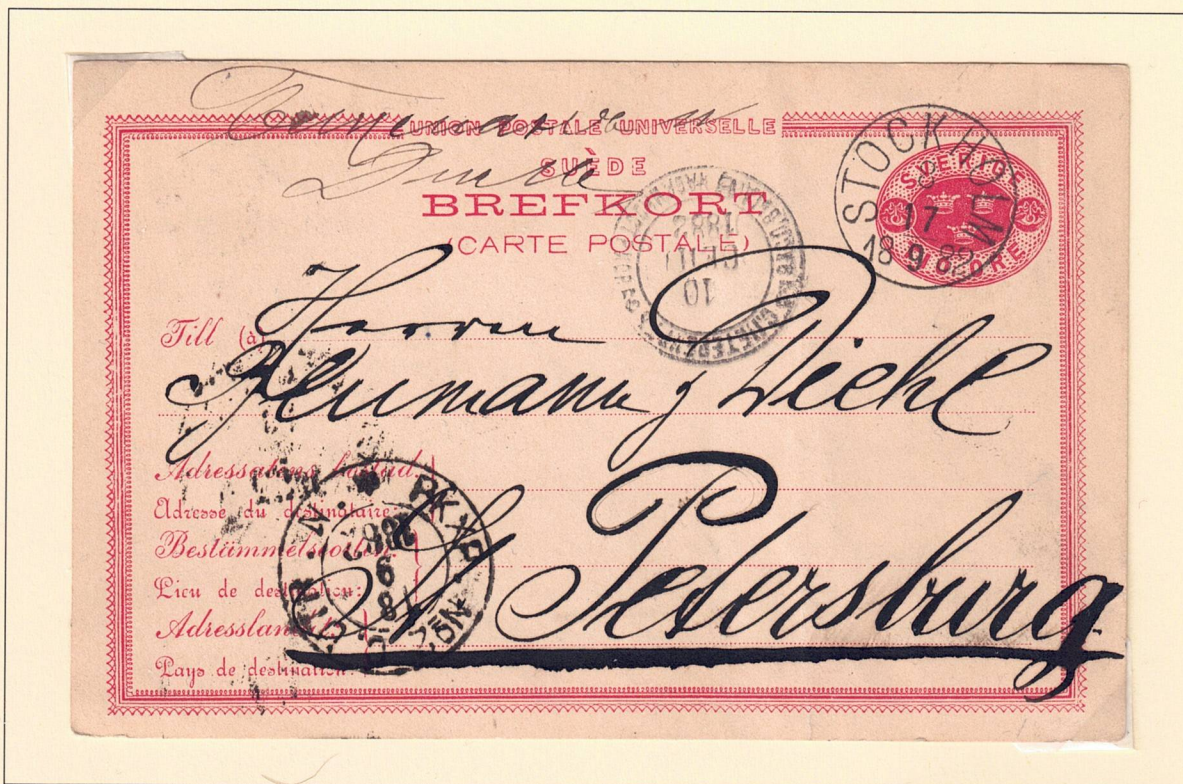 UNION POSTALE UNIVERSELLE
SUÈDE
BREFKORT
(CARTE POSTALE)
STOCKHOLM
8
17
9
18 82
SVERIGE
ÖRE
1882
10
Till (à)
Herrn
Neumann & Diehl
Adressatens bostad:
Adresse du destinataire:
Bestämmelseorten:
St. Petersburg
Lieu de destination:
Adresslandet:
Pays de destination:
PKXP
1882
9
18